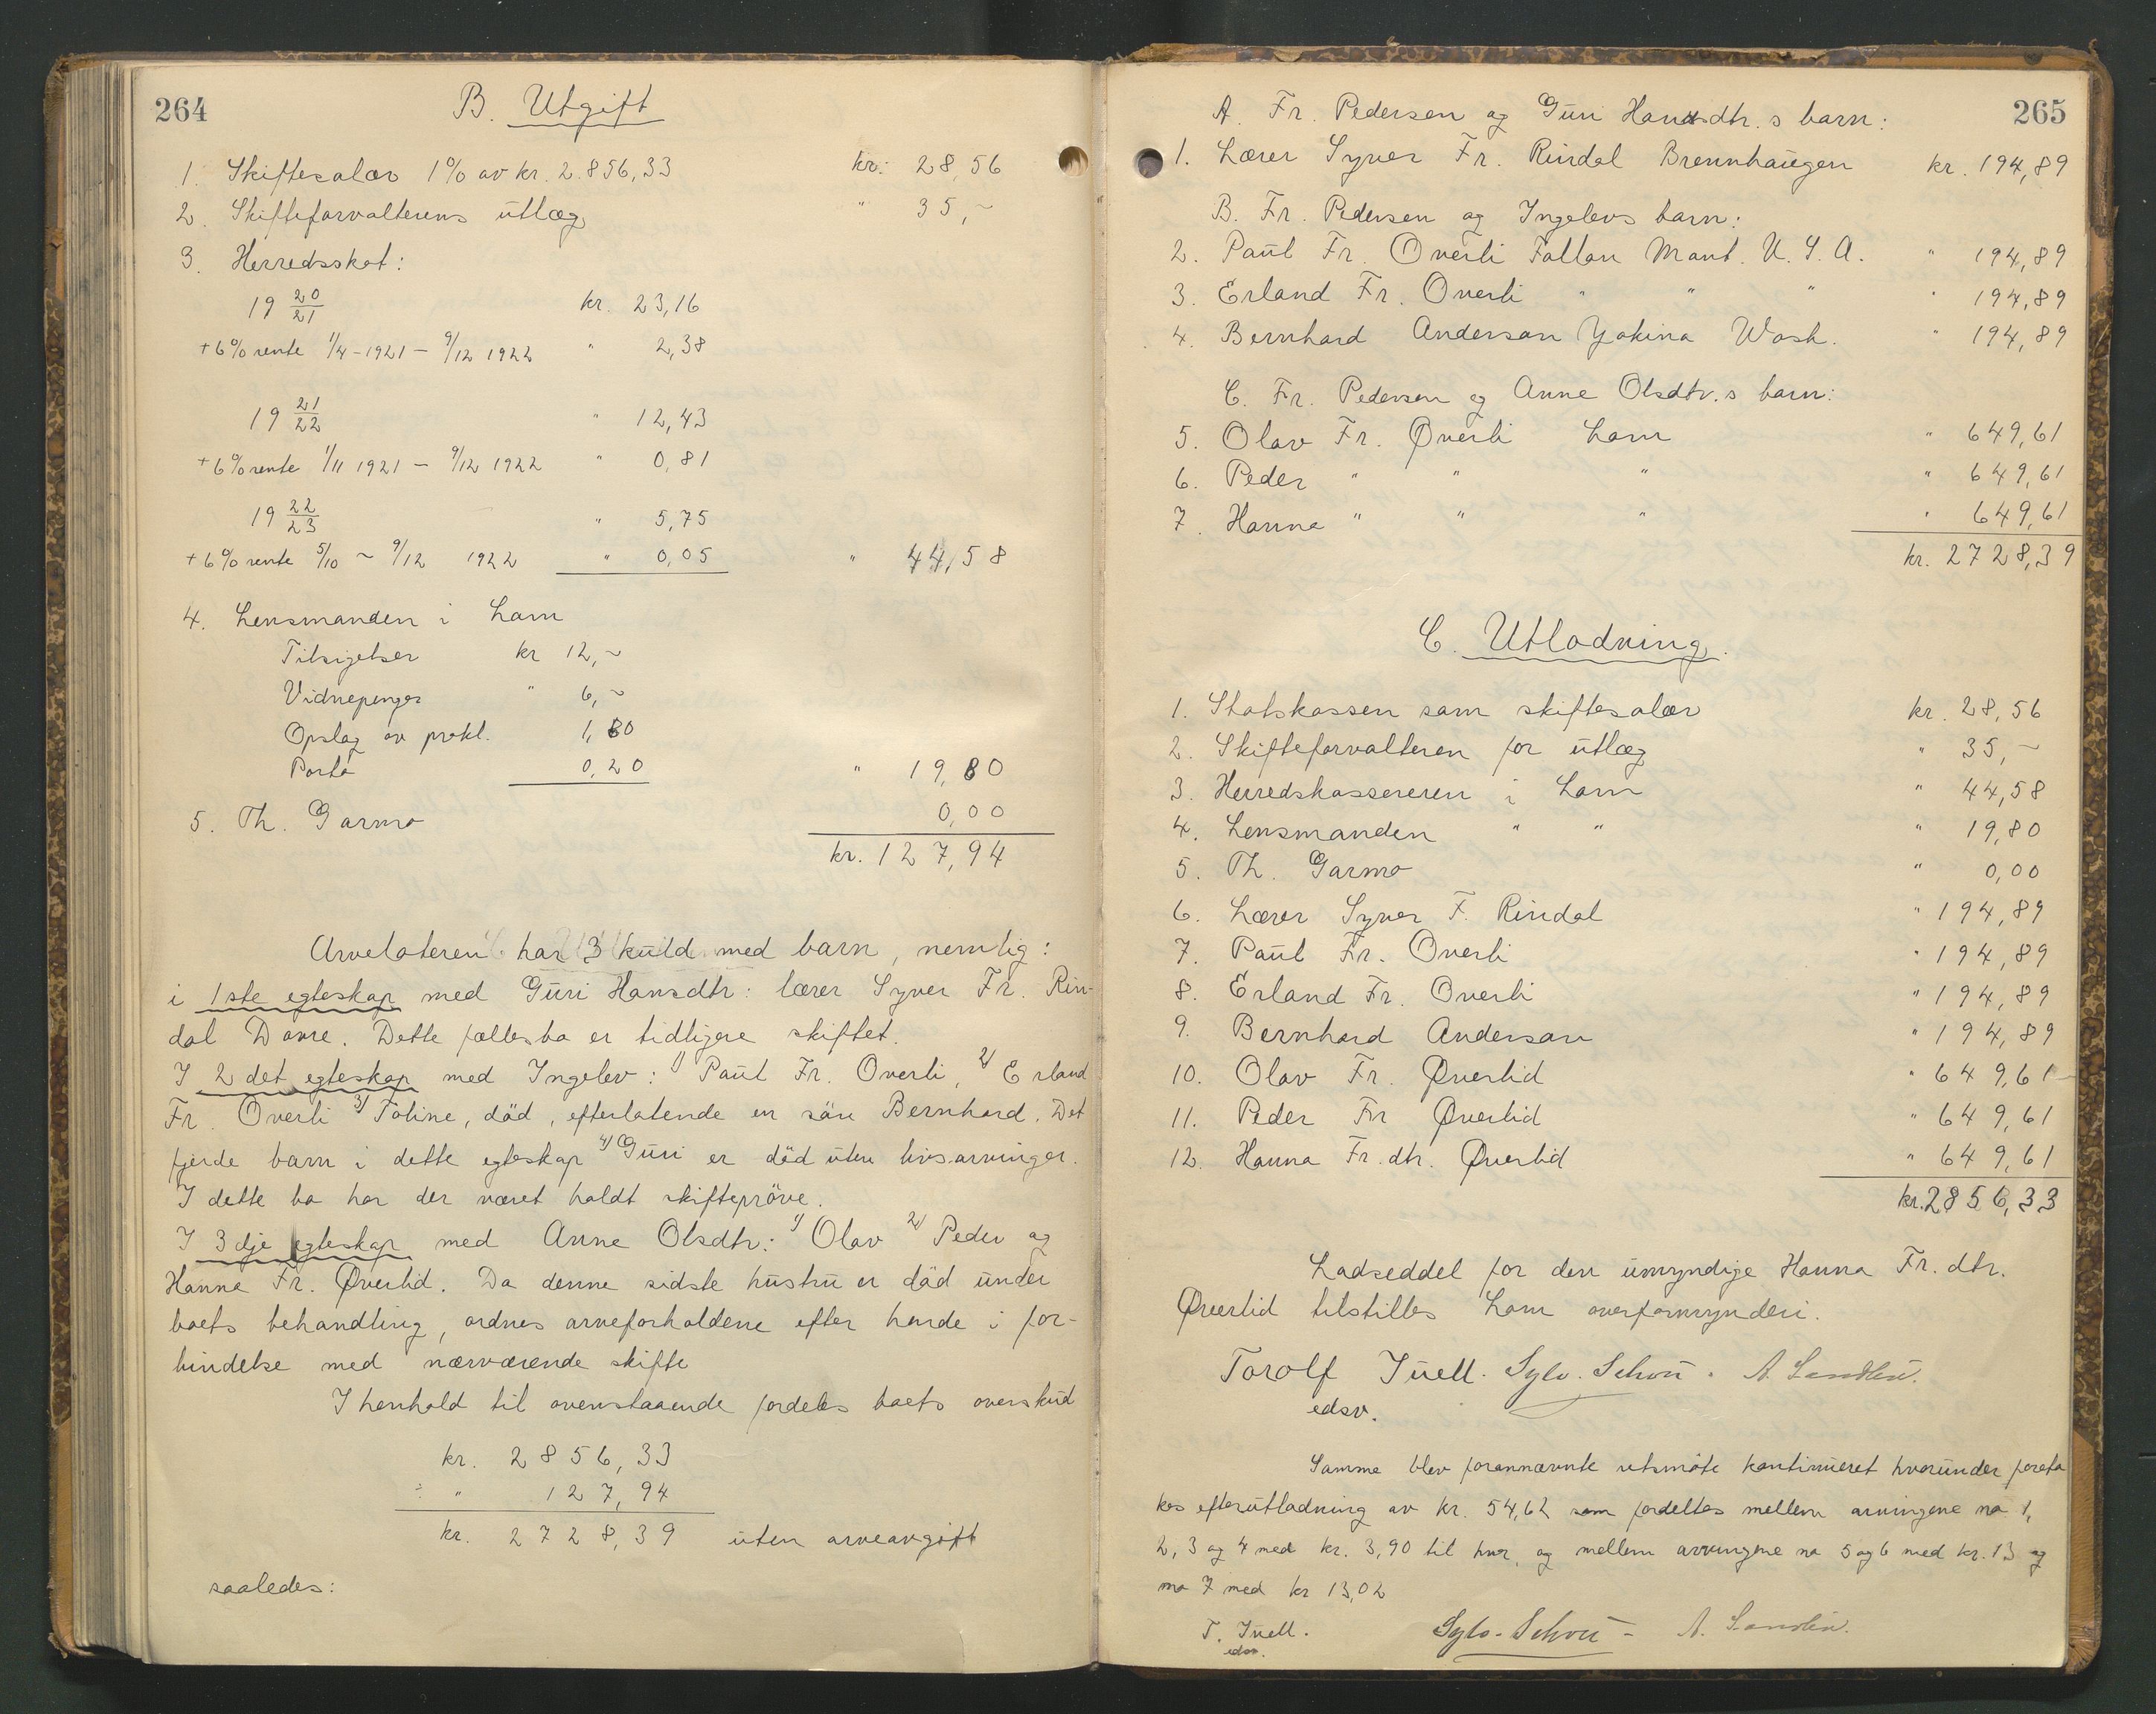 264
B. Utgift
1. Skiftesalær 1% av kr. 2.856,33 kr. 28,56
2. Skifteforvalterens utlæg " 35,~
3. Herredsskat:
19 20/21 kr. 23,16
+6% rente 1/4-1921 - 9/12 1922 " 2,38
19 21/22 " 12,43
+6% rente 1/11 1921 - 9/12 1922 " 0,81
19 22/23 " 5,75
+6% rente 5/10 ~ 9/12 1922 " 0,05 " 44,58
4. Lensmanden i Lom
Tilsigelser kr 12,~
Vidnepenger " 6,~
Opslag av prokl. 1,60
Porto 0,20 " 19,80
5. Th. Garmo 0,00
kr. 127,94
Arvelateren har 3 kuld med barn, nemlig:
i 1ste egteskap med Guri Hansdtr: lærer Syver Fr. Rin-
dal Dovre. Dette fællesbo er tidligere skiftet.
I 2 det egteskap med Ingelev: 1) Paul Fr. Overli, 2) Erland
Fr. Overli 3) Toline, död, efterlatende en sön Bernhard. Det
fjerde barn i dette egteskap 4) Guri er död uten livsarvinger.
I dette bo har der været holdt skiftepröve.
I 3dje egteskap med Anne Olsdtr: 1) Olav 2) Peder og
Hanna Fr. Øverlid. Da denne sidste hustru er död under
boets behandling, ordnes arveforholdene efter hende i for-
bindelse med nærværende skifte
I henhold til ovenstaaende fordeles boets overskud
kr. 2856,33
÷ " 127,94
kr. 2728,39 uten arveavgift
saaledes:
265
A. Fr. Pedersen og Guri Hansdtr.s barn:
1. Lærer Syver Fr. Rindal Brennhaugen kr. 194,89
B. Fr. Pedersen og Ingelevs barn:
2. Paul Fr. Overli Fallon Mont. U.S.A. " 194,89
3. Erland Fr. Overli " " " " 194,89
4. Bernhard Anderson Yakina Wash. " 194,89
C. Fr. Pedersen og Anne Olsdtr.s barn:
5. Olav Fr. Øverli Lom " 649,61
6. Peder " " " " 649,61
7. Hanna " " " " 649,61
kr. 2728,39
C. Utlodning.
1. Statskassen som skiftesalær kr. 28,56
2. Skifteforvalteren for utlæg " 35,~
3. Herredskassereren i Lom " 44,58
4. Lensmanden " " " 19,80
5. Th. Garmo " 0,00
6. Lærer Syver F. Rindal " 194,89
7. Paul Fr. Overli " 194,89
8. Erland Fr. Overli " 194,89
9. Bernhard Anderson " 194,89
10. Olav Fr. Øverlid " 649,61
11. Peder Fr Øverlid " 649,61
12. Hanna Fr.dtr. Øverlid " 649,61
kr. 2856,33
Lodseddel for den umyndige Hanna Fr. dtr.
Øverlid tilstilles Lom overformynderi.
Torolf Juell. Sylv. Schou. A. Sandlen.
edsv.
Samme blev forannævnte retsmöte kontinueret hvorunder foreto
kes efterutlodning av kr. 54,62 som fordeltes mellem arvingene no 1,
2, 3 og 4 med kr. 3,90 til hver, og mellem arvingene no 5 og 6 med kr. 13 og
no 7 med kr 13,02
T. Juell. Sylv. Schou - A. Sandlen.
edsv.